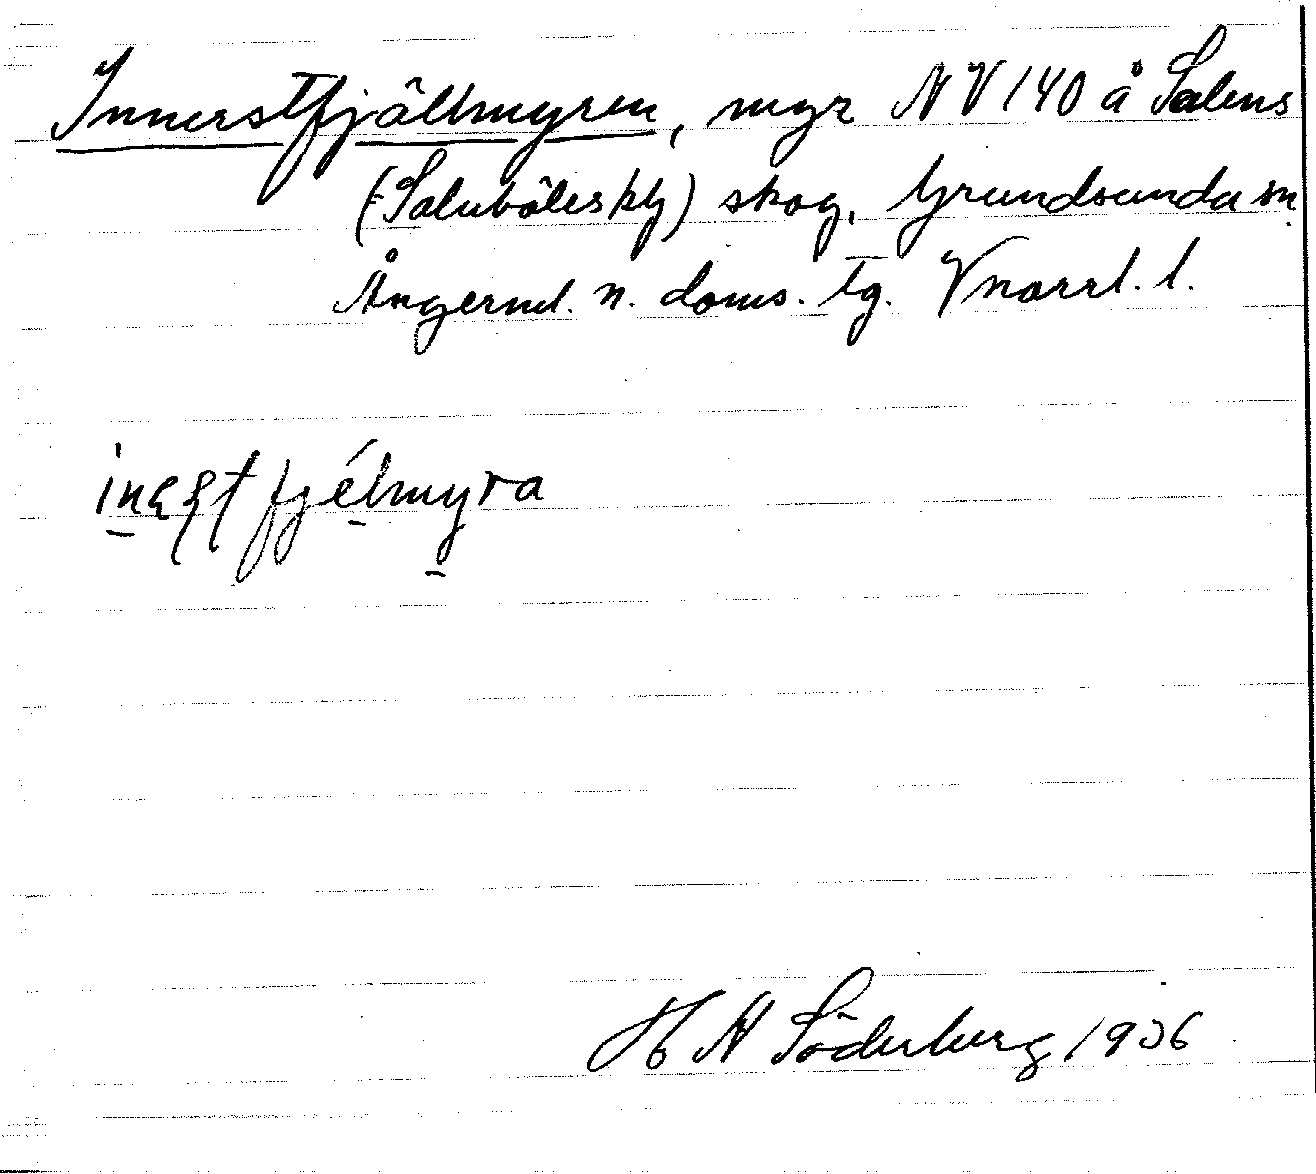 Innerstfjällmyren, myr NV 140 å Salens
(Salubölesklg) skog, Grundsunda sn.
Ångerml. n. doms. tg. Vnorrl. l.
fjélmyra
H N Söderberg 1936